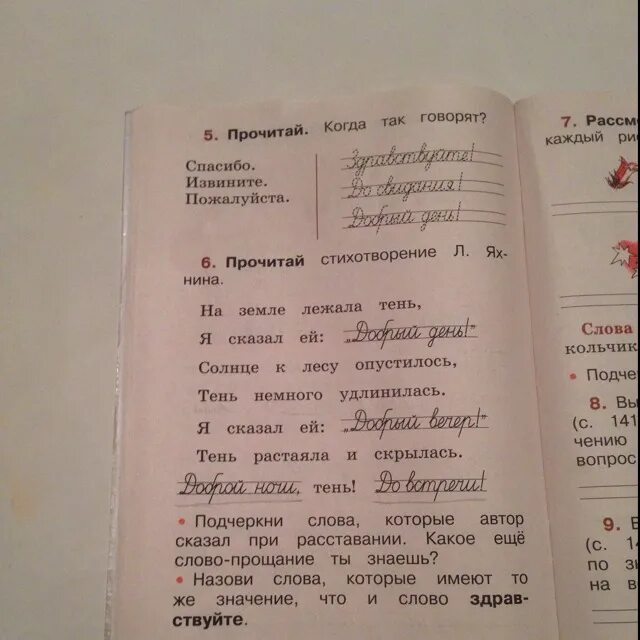 5. Прочитай. Когда так говорят?
Спасибо. Здравствуйте!
Извините. До свидания!
Пожалуйста. Добрый день!
6. Прочитай стихотворение Л. Ях-
нина.
На земле лежала тень,
Я сказал ей: „Добрый день!"
Солнце к лесу опустилось,
Тень немного удлинилась.
Я сказал ей: „Добрый вечер!"
Тень растаяла и скрылась.
Доброй ночи, тень! До встречи!
• Подчеркни слова, которые автор
сказал при расставании. Какое ещё
слово-прощание ты знаешь?
• Назови слова, которые имеют то
же значение, что и слово здрав-
ствуйте.
7. Рассм
каждый ри
Слова
кольчик
• Подче
8. Вы
(с. 141
чению
вопрос
9. В
(с. 14
по зн
на в